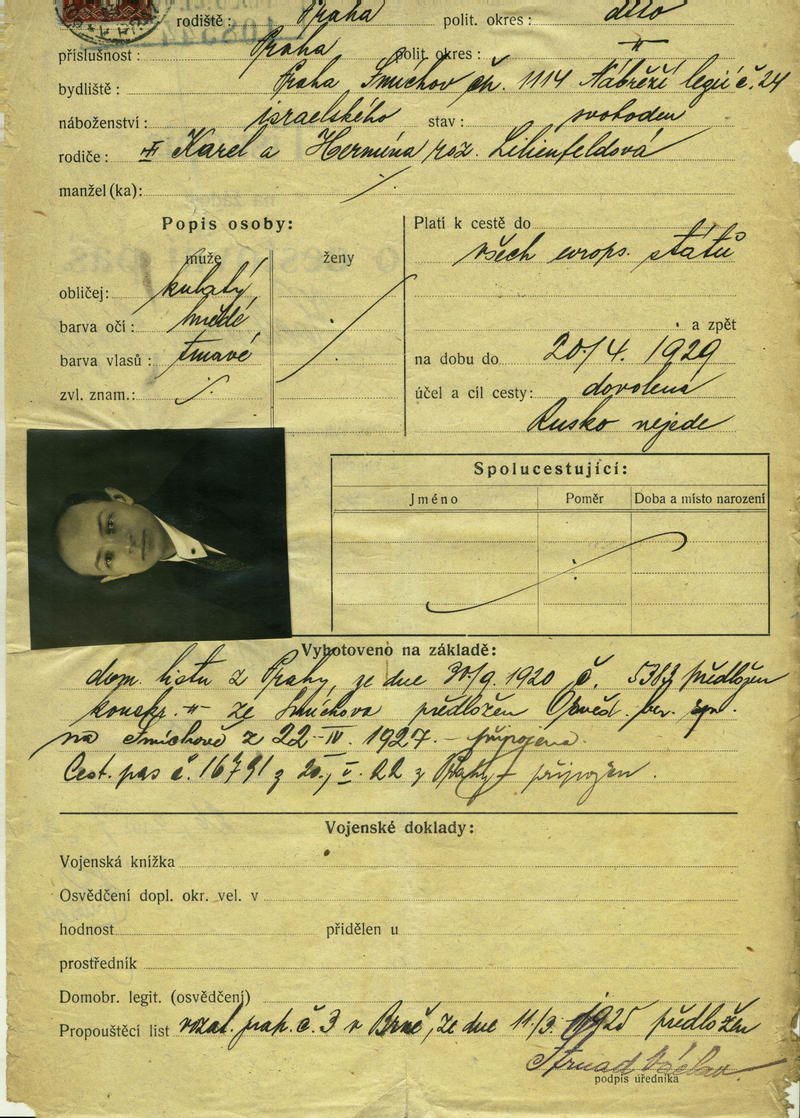 rodiště: Praha polit. okres: detto
příslušnost: Praha polit. okres: —"—
bydliště: Praha Smíchov čp. 1114 Nábřeží legií č. 24
náboženství: israelského stav: svoboden
rodiče: Karel a Hermína roz. Lilienfeldová
manžel (ka):
Popis osoby:
muže ženy
obličej: kulatý
barva očí: hnědé
barva vlasů: tmavé
zvl. znam.:
Platí k cestě do
všech evrops. států
a zpět
na dobu do 20/4. 1929
účel a cíl cesty: dovolená
Rusko nejede
Spolucestující:
Jméno Poměr Doba a místo narození
Vyhotoveno na základě:
dom. listu z Prahy, ze dne 30/9. 1920 č. předložen
konskr. —"— ze Smíchova předložen Osvěd. ber. spr.
na Smíchově z 22-IV. 1927. – připojena.
Cest. pas č. 16791 z 20. V. 22 z Prahy – připojen.
Vojenské doklady:
Vojenská knížka
Osvědčení dopl. okr. vel. v
hodnost přidělen u
prostředník
Domobr. legit. (osvědčení)
Propouštěcí list vozat. prap. č. 3 v Brně, ze dne 11/3. 1925 předložen
Strnad Václav
podpis úředníka